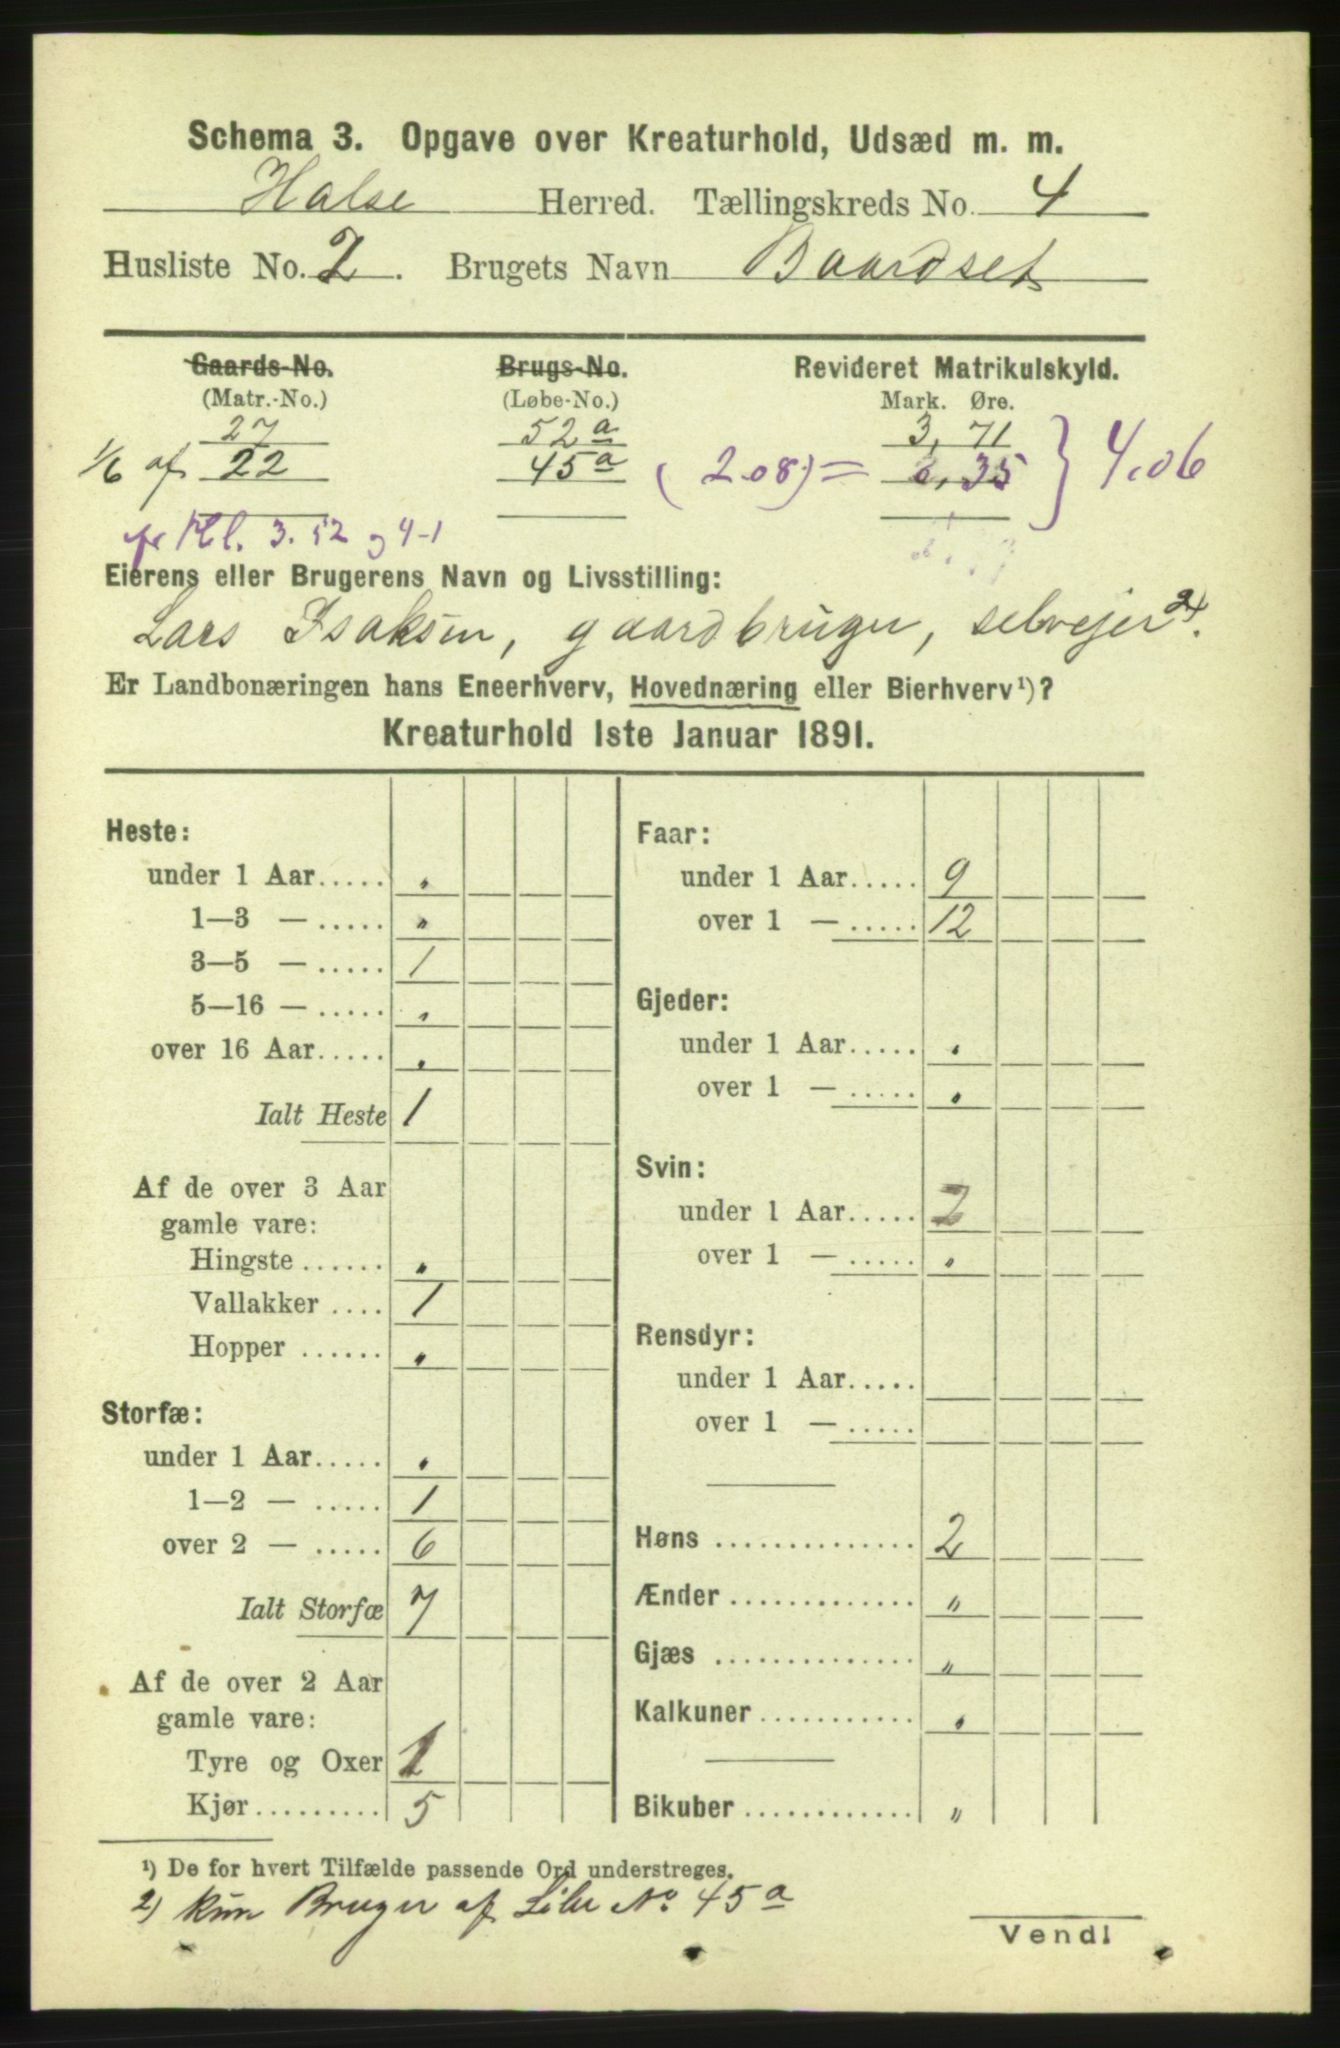 Schema 3. Opgave over Kreaturhold, Udsæd m. m.
Halse Herred. Tællingskreds No. 4
Husliste No. 2. Brugets Navn Baardset
Gaards-No. Brugs-No. Revideret Matrikulskyld.
(Matr.-No.) (Løbe-No.) Mark. Øre.
27 52 a 3, 71
1/6 af 22 45 a (2.08) = 0,35 } 4.06
fr Hl. 3. 52 og 4-1
Eierens eller Brugerens Navn og Livsstilling:
Lars Isaksen, gaardbruger, selvejer 2).
Er Landbonæringen hans Eneerhverv, Hovednæring eller Bierhverv ¹)?
Kreaturhold 1ste Januar 1891.
Heste:
under 1 Aar..... „
1—3 — ..... „
3—5 — ..... 1
5—16 — ..... „
over 16 Aar..... „
Ialt Heste 1
Af de over 3 Aar
gamle vare:
Hingste ...... „
Vallakker .... 1
Hopper ...... „
Storfæ:
under 1 Aar..... „
1—2 — ..... 1
over 2 — ..... 6
Ialt Storfæ 7
Af de over 2 Aar
gamle vare:
Tyre og Oxer 1
Kjør......... 5
Faar:
under 1 Aar..... 9
over 1 — ..... 12
Gjeder:
under 1 Aar..... „
over 1 — ..... „
Svin:
under 1 Aar..... 2
over 1 — ..... „
Rensdyr:
under 1 Aar.....
over 1 — .....
Høns .............. 2
Ænder ............. „
Gjæs .............. „
Kalkuner ........... „
Bikuber ............ „
¹) De for hvert Tilfælde passende Ord understreges.
2) kun Bruger af Løbe No 45 a
Vend!